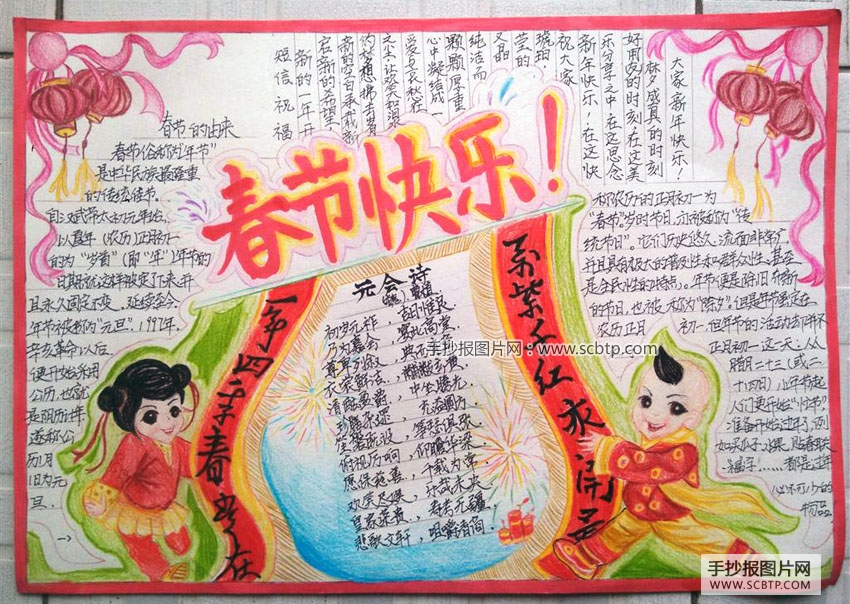 短信祝福
新的一年开
启新的希望,
新的空白承载新
的梦想拂去岁
之尘,让欢笑和泪
爱与哀愁在
心中凝结成一
颗颗厚重
纯洁而
又晶
莹的
琥珀
祝大家
新年快乐!在这快
乐分享之中在这思念
好朋友的时刻在这美
成真的时刻
大家新年快乐!
春节快乐!
春节的由来
春节俗称"年节"
是中华民族最隆重
的传统佳节.
自汉武帝太初元年始,
以夏年(农历)正月初一
的为"岁首"(即"年")年节的
日期就这样被定了下来,并
且永久固定不变.延续至今.
年节不被称为"元旦".1997年.
辛亥革命以后,
便开始采用
公历,也就
是阳历计年.
遂称公
历1月
1日为元
旦.
→
一年四季春常在
万紫千红永开花
元会诗
曹植
初岁元祚,吉日惟良.
乃为嘉会,宴此高堂.
尊卑列叙,典而有章.
衣裳鲜洁,黼黻玄黄.
清酤盈爵,中坐腾光.
珍膳杂遝,充溢圆方.
笙磬既设,筝瑟俱张.
俯视厉响,仰瞻华梁.
愿保兹善,千载为常.
欢笑尽娱,乐哉未央.
皇家荣贵,寿考无疆.
悲歌文轩,咀嚼清商.
称农历的正月初一为
"春节"。岁时节日,亦被称为"传
统节日"。它们历史悠久、流面非常广,
并且具有极大的普及性和群众性,甚至
是全民性的特点。年节便是除旧布新
的节日,也被称为"除夕".但是年节是定在
农历正月初一.但年节的活动却并不
正月初一这一天.从
腊月二十三(或二
十四日)小年节起
人们便开始"忙年".
准备开始过年了.例
如买瓜子、水果、贴春联
福字……都是过年
必不可少的
物品
手抄报图片网:www.scbtp.com
手抄报图片网
WWW.SCBTP.COM